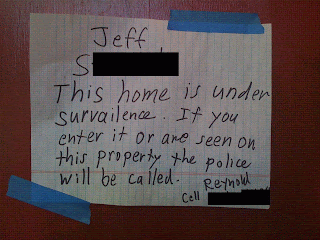 Jeff
S
This home is under
survailence. If you
enter it or are seen on
this property the police
will be called.
Reynold
Cell